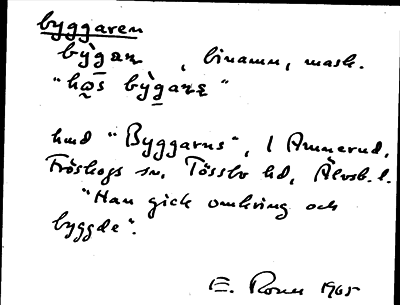 byggaren
bỳgaɳ , binamn, mask.
"hɷs bỳgaɳs"
hmd "Byggarns", i Ammerud,
Fröskogs sn, Tössbo hd, Älvsb. l.
"Han gick omkring och
byggde".
E. Rosen 1965